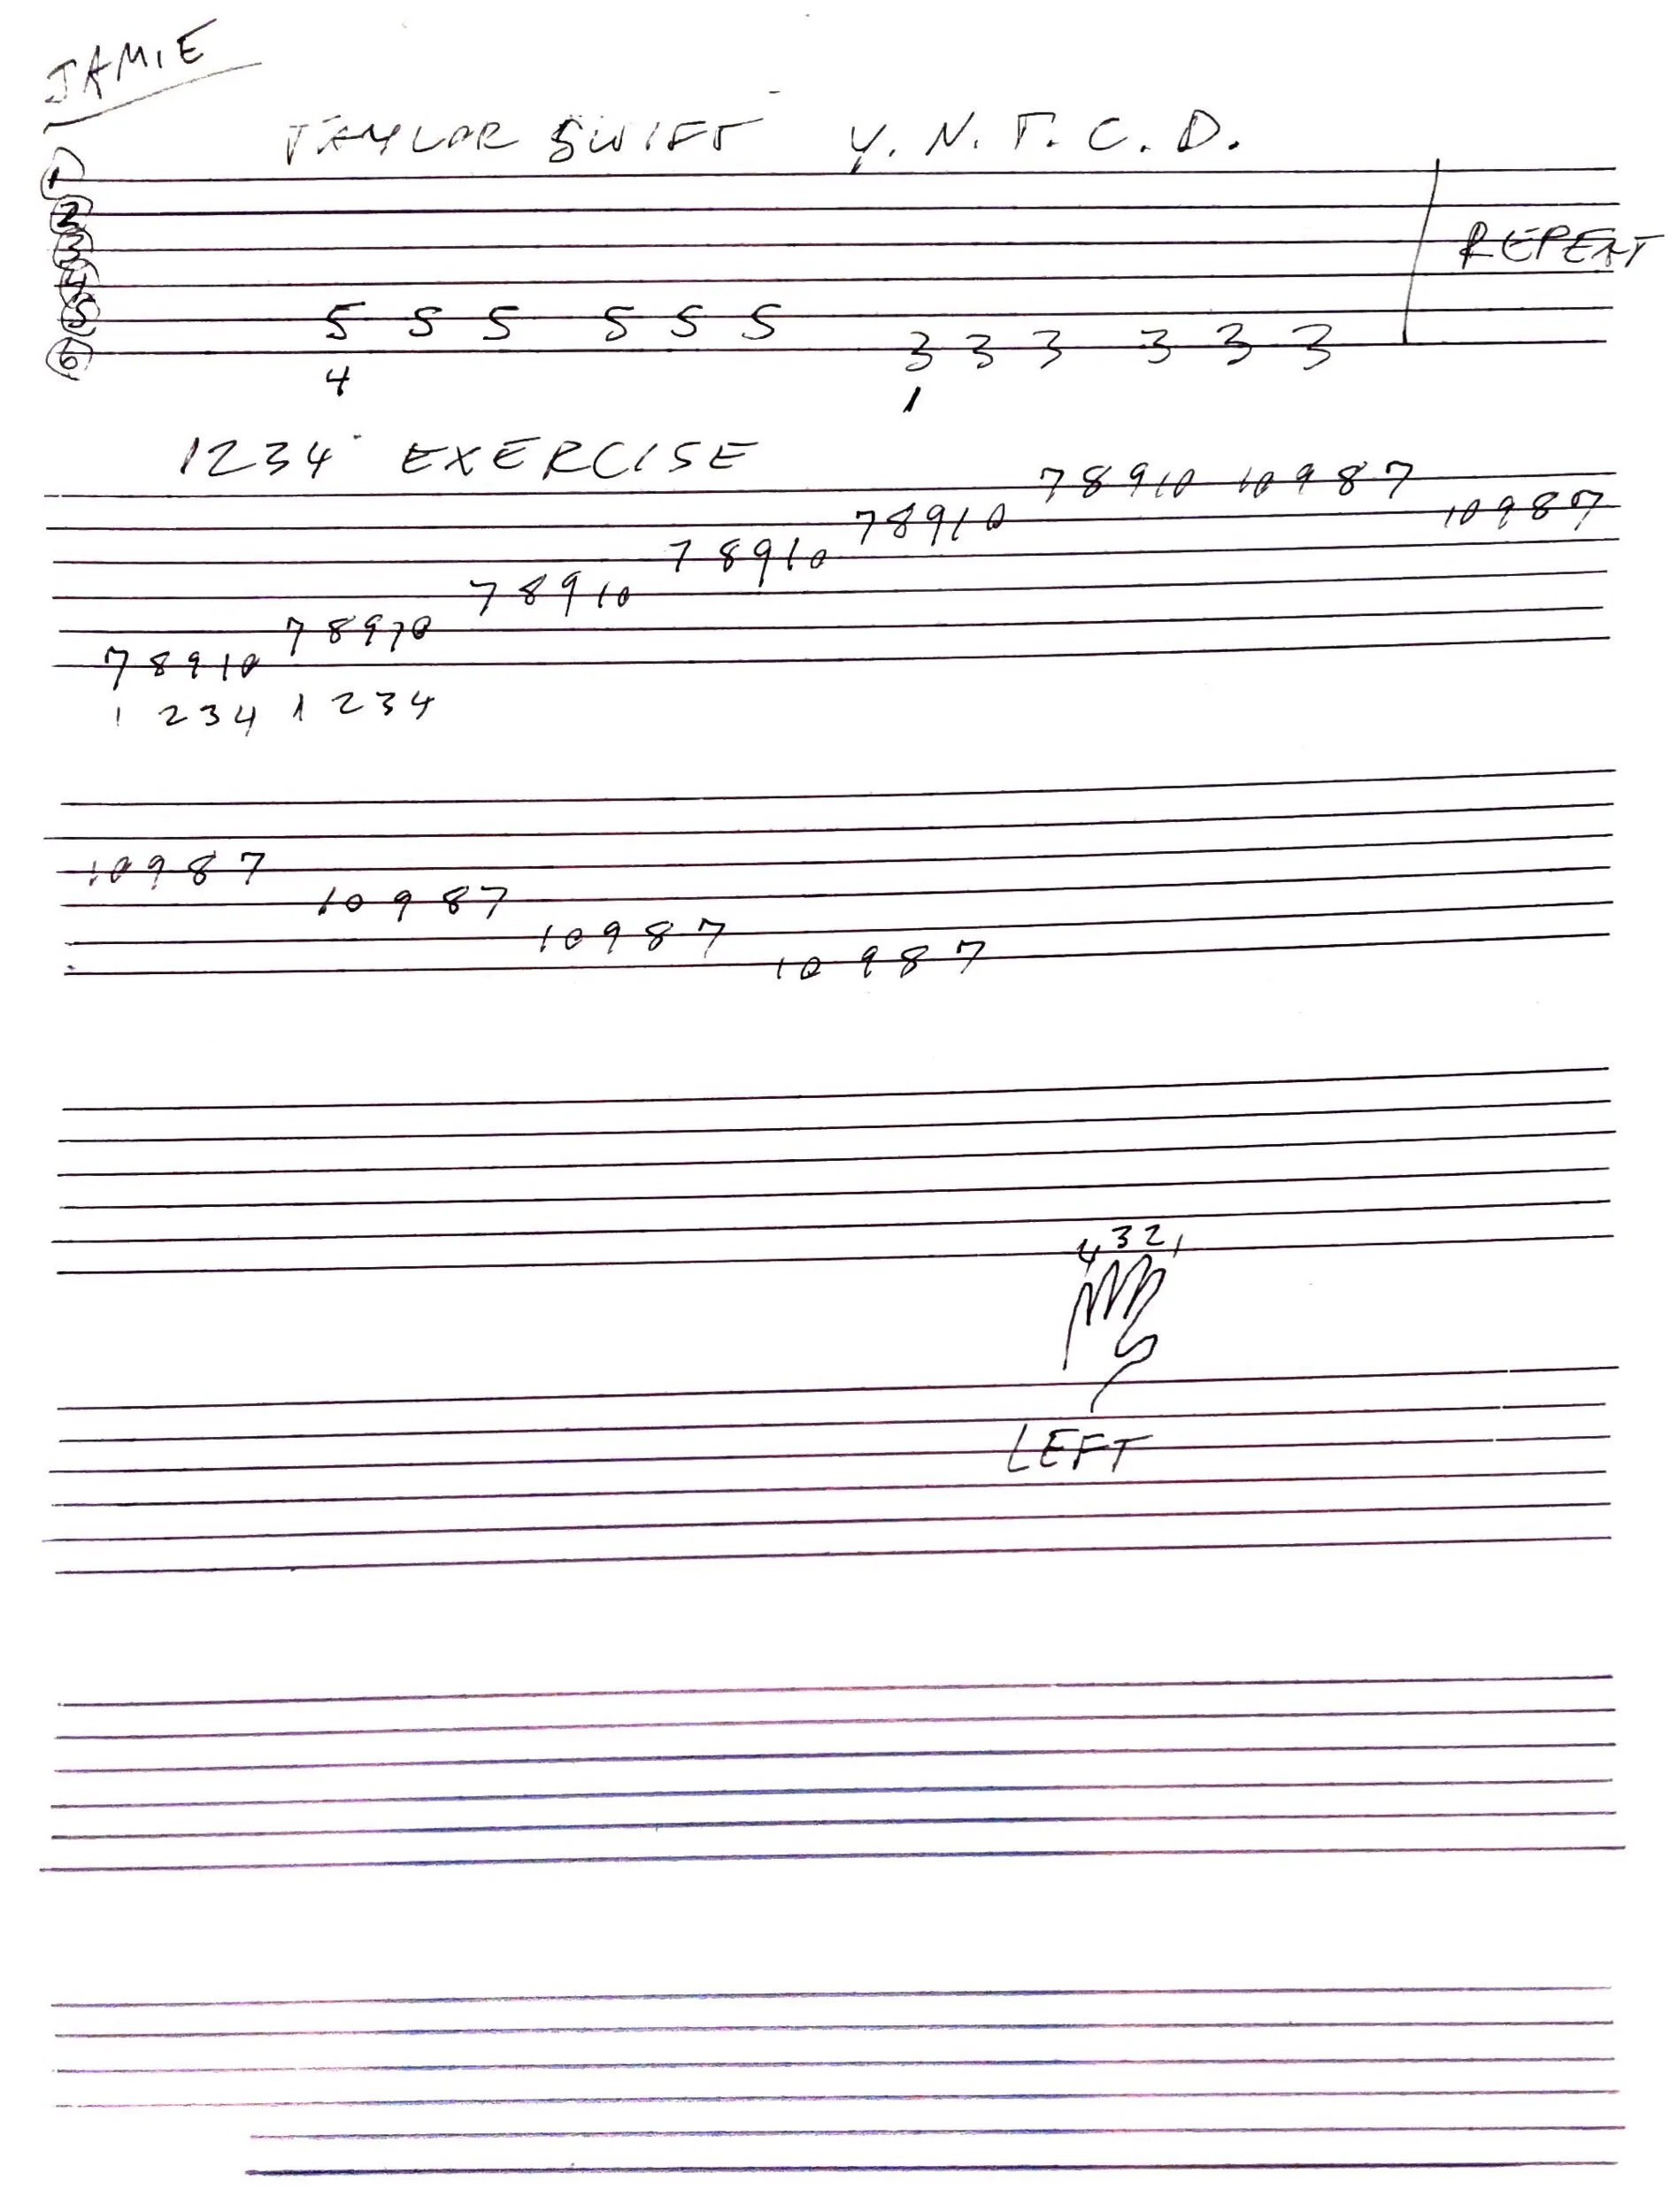 JAMIE
TAYLOR SWIFT Y. N. T. C. D.
1
2
3 REPEAT
4
5 5 5 5 5 5 5
6 3 3 3 3 3 3
4 1
1234 EXERCISE
7 8 9 10 10 9 8 7
7 8 9 10 10 9 8 7
7 8 9 10
7 8 9 10
7 8 9 10
7 8 9 10
1 2 3 4 1 2 3 4
10 9 8 7
10 9 8 7
10 9 8 7
10 9 8 7
4 3 2 1
LEFT